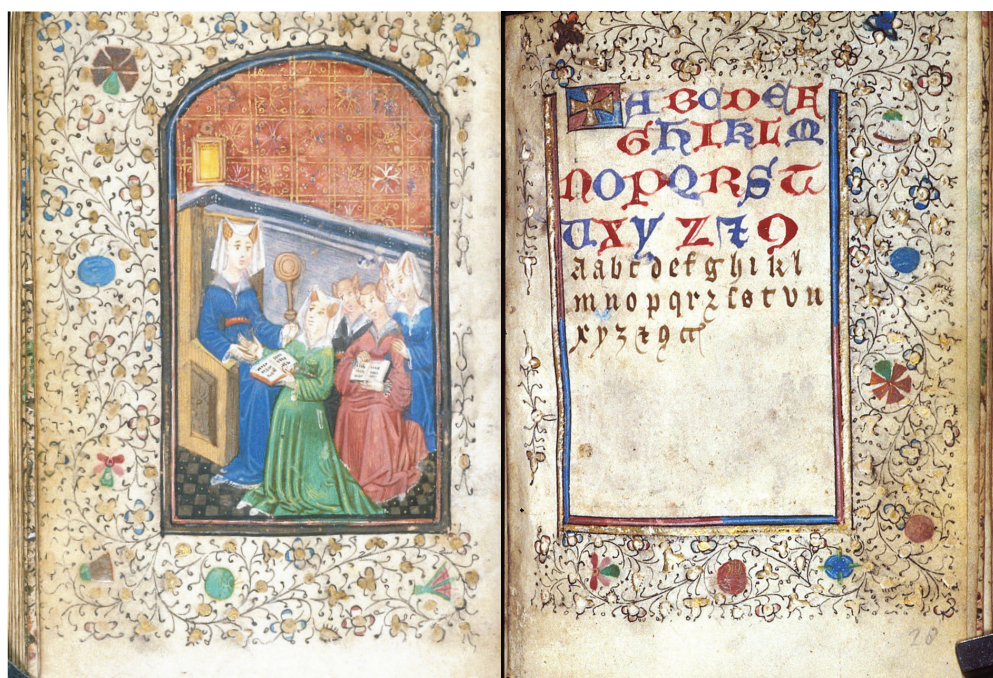 ✠ A B C D E F
G H I K L M
N O P Q R S T
U X Y Z ⁊ ꝯ
A a b c d e f g h i k l
m n o p q r ꝛ ſ s t v u
x y z ⁊ ꝯ
28